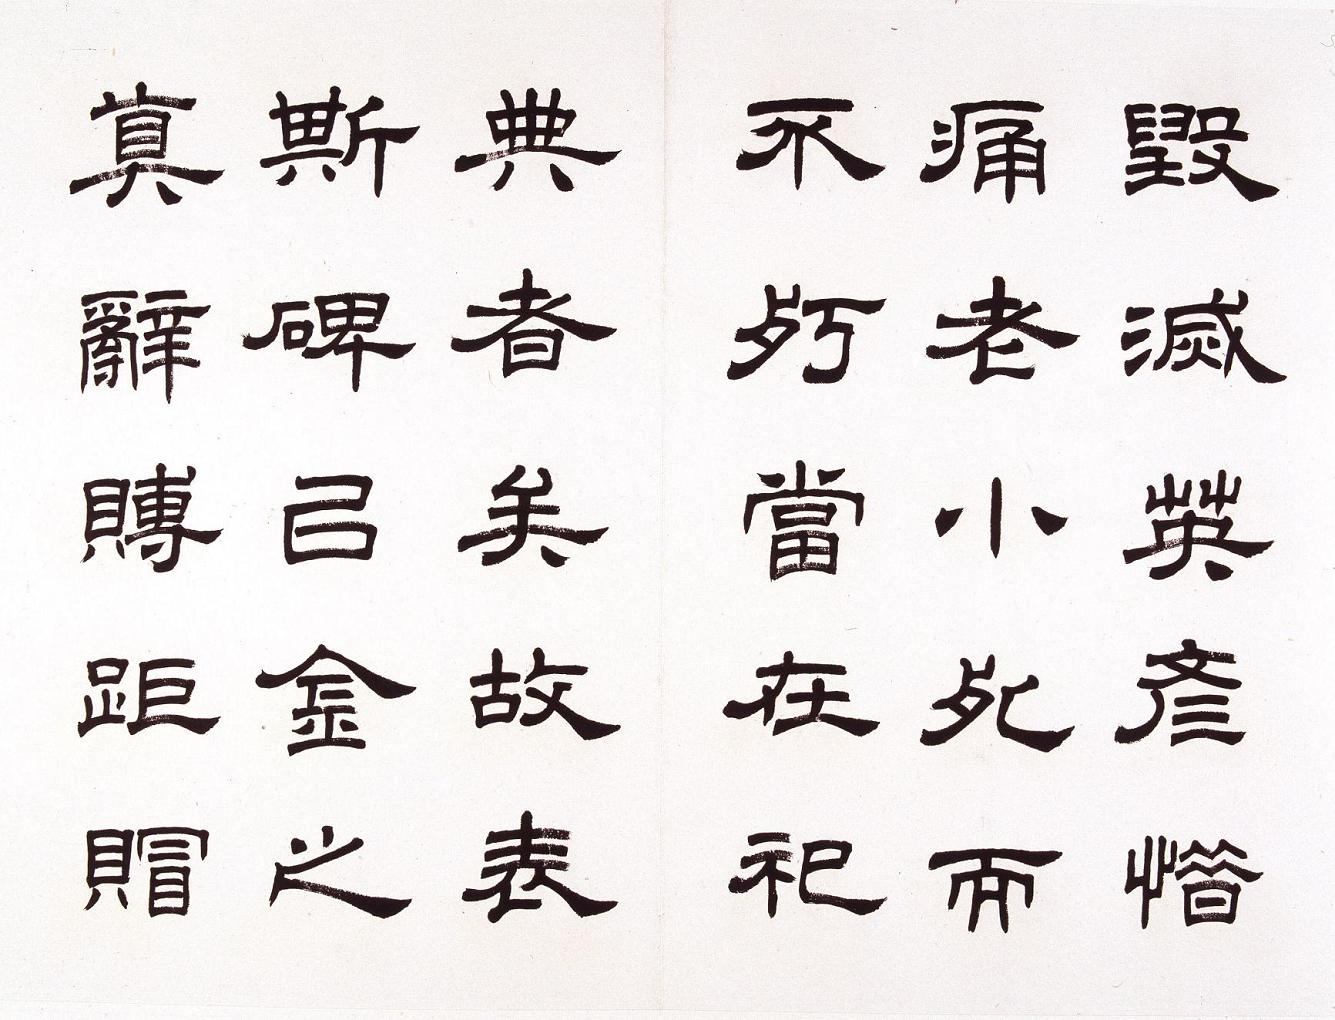 毀滅英彥憯
痛老小死而
不朽當在祀
典者矣故表
斯碑㠯金之
真辭賻距賵